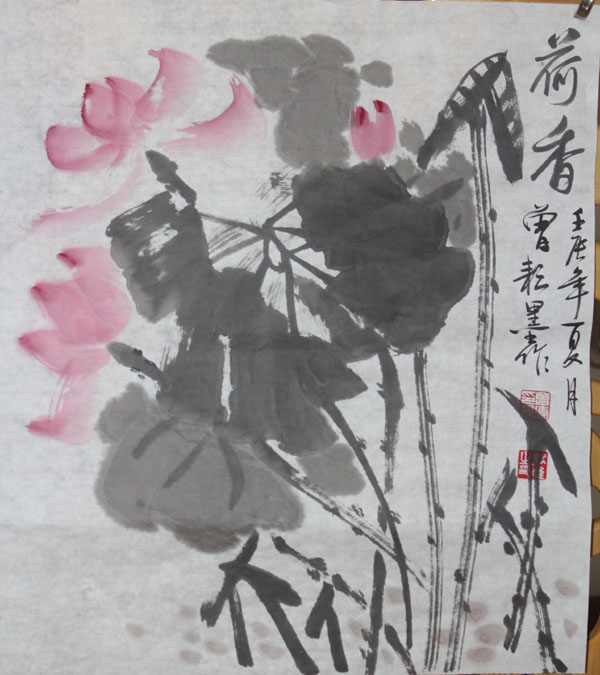 荷香
壬辰年夏月
曾墨作